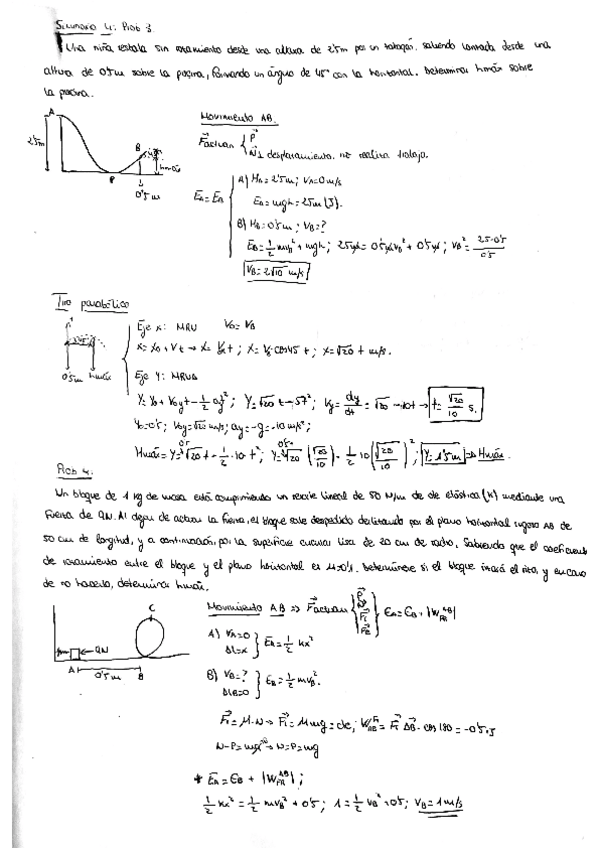 Seminario 4: Prob 3.
Una niña resbala sin rozamiento desde una altura de 2'5m por un tobogán, saliendo lanzada desde una
altura de 0'5m sobre la piscina, formando un ángulo de 45° con la horizontal. Determinar hmáx sobre
la piscina.
Movimiento AB.
A
2'5m
B
hmáx
P
0'5m
Factúan { P
N ⊥ desplazamiento. no realiza trabajo.
EA = EB
A) HA = 2'5m; VA = 0 m/s
EA = mgh = 25m (J).
B) HB = 0'5m; VB = ?
EB = 1/2 mVB² + mgh; VB² =
VB = 2√10 m/s
Tiro parabólico
0'5m hmáx
Eje x: MRU V0 = VB
X = X0 + Vt → X = V0x t; X = V0·cos45 t; X = √20 t m/s.
Eje Y: MRUA
Y = Y0 + V0y t - 1/2 ay t²; Y = √20 t - 5t²; Vy = dy/dt = √20 - 10t → t = √20/10 s.
Y0 = 0'5; V0y = √20 m/s; ay = -g = -10 m/s²;
Y = 1'5m ⇒ Hmáx.
Prob 4.
Un bloque de 1 kg de masa está comprimiendo un resorte lineal de 50 N/m de cte elástica (K) mediante una
fuerza de 
 Al dejar de actuar la fuerza, el bloque sale despedido deslizando por el plano horizontal rugoso AB de
50 cm de longitud, y a continuación, por la superficie circular lisa de 20 cm de radio. Sabiendo que el coeficiente
de rozamiento entre el bloque y el plano horizontal es μ=0'1. Determínese si el bloque rizará el rizo, y en caso
de no hacerlo, determinar hmáx.
C
A 0'5m B
Movimiento AB ⇒ Factúan
EA = EB + |W AB FR|
A) VA = 0
Δl = x } EA = 1/2 kx²
B) VB = ?
ΔlB = 0 } EB = 1/2 mVB².
Fr = μ·N → Fr = μmg = cte; · cos 180 = -0'5 J
→ N = P = mg
* EA = EB + |W AB FR|;
1/2 kx² = 1/2 mVB² + 0'5; 1 = 1/2 VB² + 0'5; VB = 1 m/s